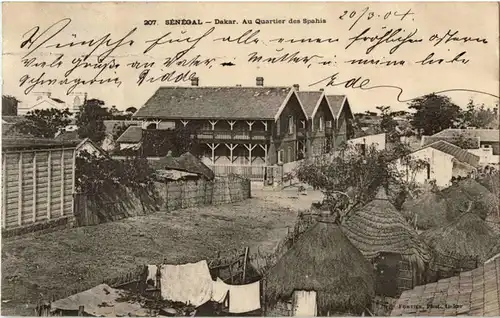 207. SÉNÉGAL — Dakar. Au Quartier des Spahis
20/3.04.
Wünsche euch alle einen fröhlichen Ostern
Viele Grüße an Vater Mutter u meine liebe
Schwägerin
Fortier, Phot. Dakar